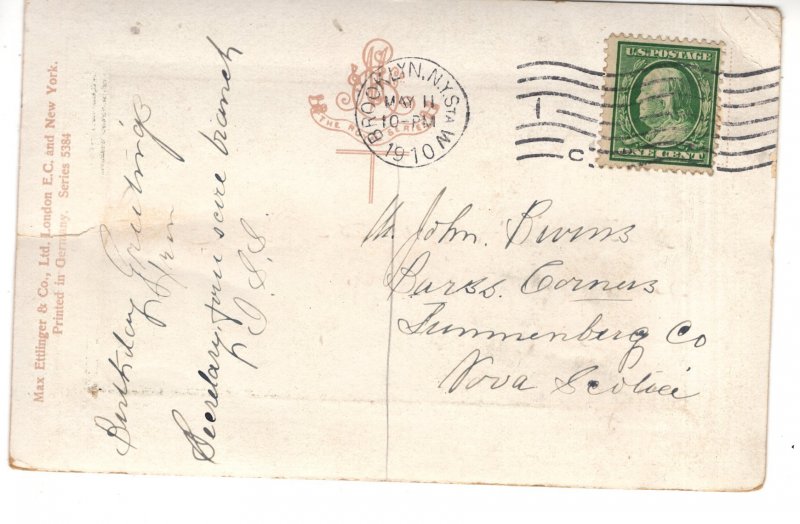 Max Ettlinger & Co., Ltd. London E.C. and New York.
Printed in Germany. Series 5384
Birthday Greetings
from
Secretary, branch
THE SERIES
BROOKLYN, N.Y. STA W
MAY 11
10-PM
1910
C
U.S. POSTAGE
ONE CENT
John
Corners
Lunnenberg Co
Nova Scotia